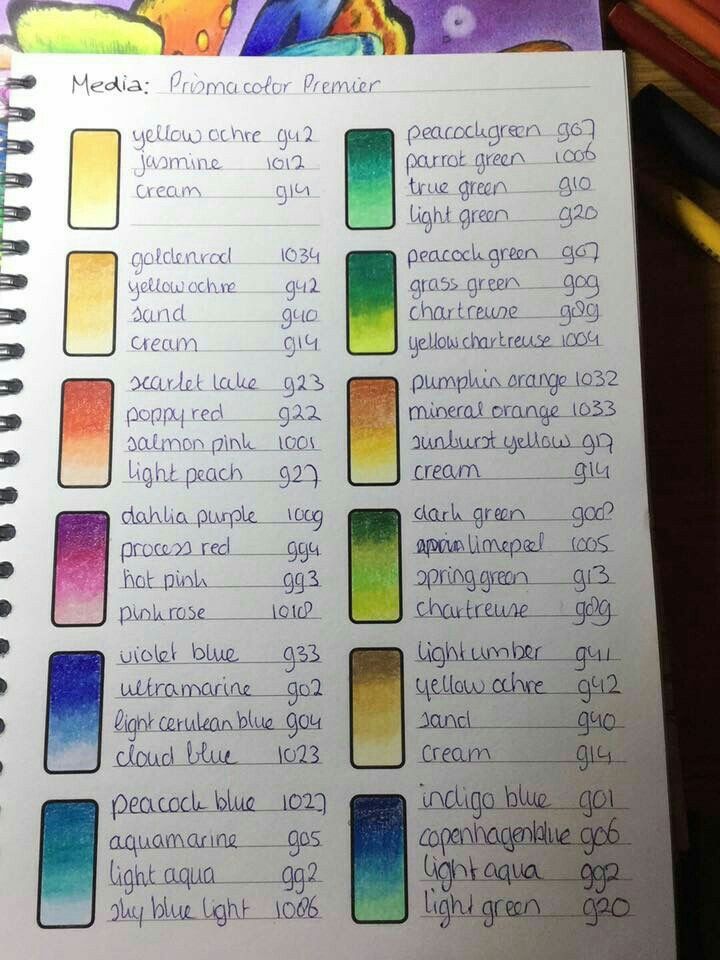 Media: Prismacolor Premier
yellow ochre 942
jasmine 1012
cream 914
goldenrod 1034
yellow ochre 942
sand 940
cream 914
scarlet lake 923
poppy red 922
salmon pink 1001
light peach 927
dahlia purple 1009
process red 994
hot pink 993
pink rose 1018
violet blue 933
ultramarine 902
light cerulean blue 904
cloud blue 1023
peacock blue 1027
aquamarine 905
light aqua 992
sky blue light 1086
peacock green 907
parrot green 1006
true green 910
light green 920
peacock green 907
grass green 909
chartreuse 989
yellow chartreuse 1004
pumpkin orange 1032
mineral orange 1033
sunburst yellow 917
cream 914
dark green 908
limepeel 1005
spring green 913
chartreuse 989
light umber 941
yellow ochre 942
sand 940
cream 914
indigo blue 901
copenhagen blue 906
light aqua 992
light green 920